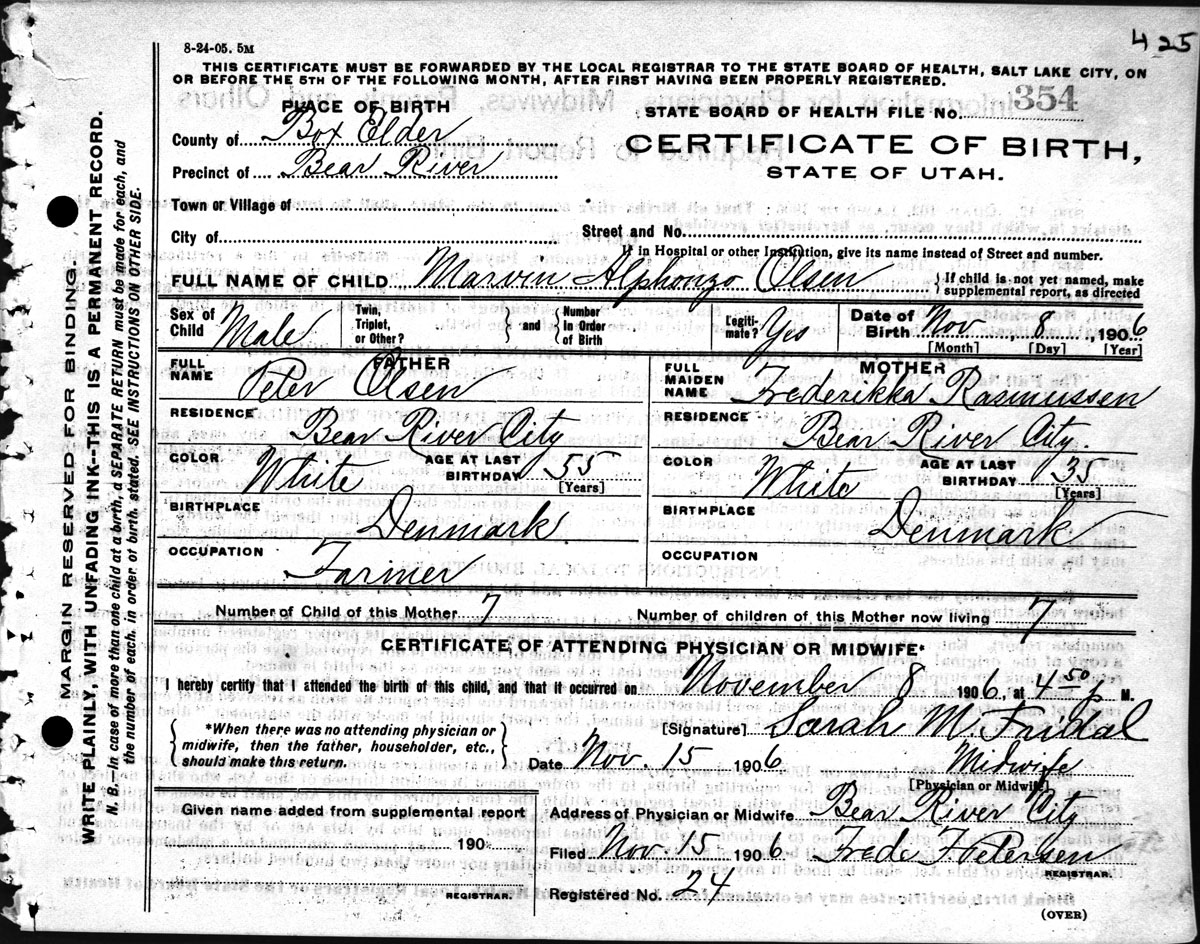 425
8-24-05. 5M
THIS CERTIFICATE MUST BE FORWARDED BY THE LOCAL REGISTRAR TO THE STATE BOARD OF HEALTH, SALT LAKE CITY, ON
OR BEFORE THE 5TH OF THE FOLLOWING MONTH, AFTER FIRST HAVING BEEN PROPERLY REGISTERED.
PLACE OF BIRTH
STATE BOARD OF HEALTH FILE No. 354
County of Box Elder
CERTIFICATE OF BIRTH,
Precinct of Bear River
STATE OF UTAH.
Town or Village of
City of
Street and No.
If in Hospital or other Institution, give its name instead of Street and number.
FULL NAME OF CHILD Marvin Alphonzo Olsen
{If child is not yet named, make
supplemental report, as directed
Sex of Child Male
Twin, Triplet, or Other? } and { Number In Order of Birth
Legiti- mate? Yes
Date of Birth Nov, 8, 1906
[Month] [Day] [Year]
FATHER
FULL NAME Peter Olsen
MOTHER
FULL MAIDEN NAME Frederikka Rasmussen
RESIDENCE Bear River City
RESIDENCE Bear River City.
COLOR White AGE AT LAST BIRTHDAY 55 [Years]
COLOR White AGE AT LAST BIRTHDAY 35 [Years]
BIRTHPLACE Denmark
BIRTHPLACE Denmark
OCCUPATION Farmer
OCCUPATION
Number of Child of this Mother 7
Number of children of this Mother now living 7
CERTIFICATE OF ATTENDING PHYSICIAN OR MIDWIFE*
I hereby certify that I attended the birth of this child, and that it occurred on November 8 1906, at 4 50 p M.
{*When there was no attending physician or
midwife, then the father, householder, etc.,
should make this return.}
[Signature] Sarah M. Fridal
Date Nov. 15 1906
Midwife
[Physician or Midwife]
Given name added from supplemental report
190
REGISTRAR.
Address of Physician or Midwife Bear River City
Filed Nov. 15 1906 Frede F. Petersen
REGISTRAR.
Registered No. 24
(OVER)
MARGIN RESERVED FOR BINDING.
WRITE PLAINLY, WITH UNFADING INK--THIS IS A PERMANENT RECORD.
N. B.--In case of more than one child at a birth, a SEPARATE RETURN must be made for each, and
the number of each, in order of birth, stated. SEE INSTRUCTIONS ON OTHER SIDE.